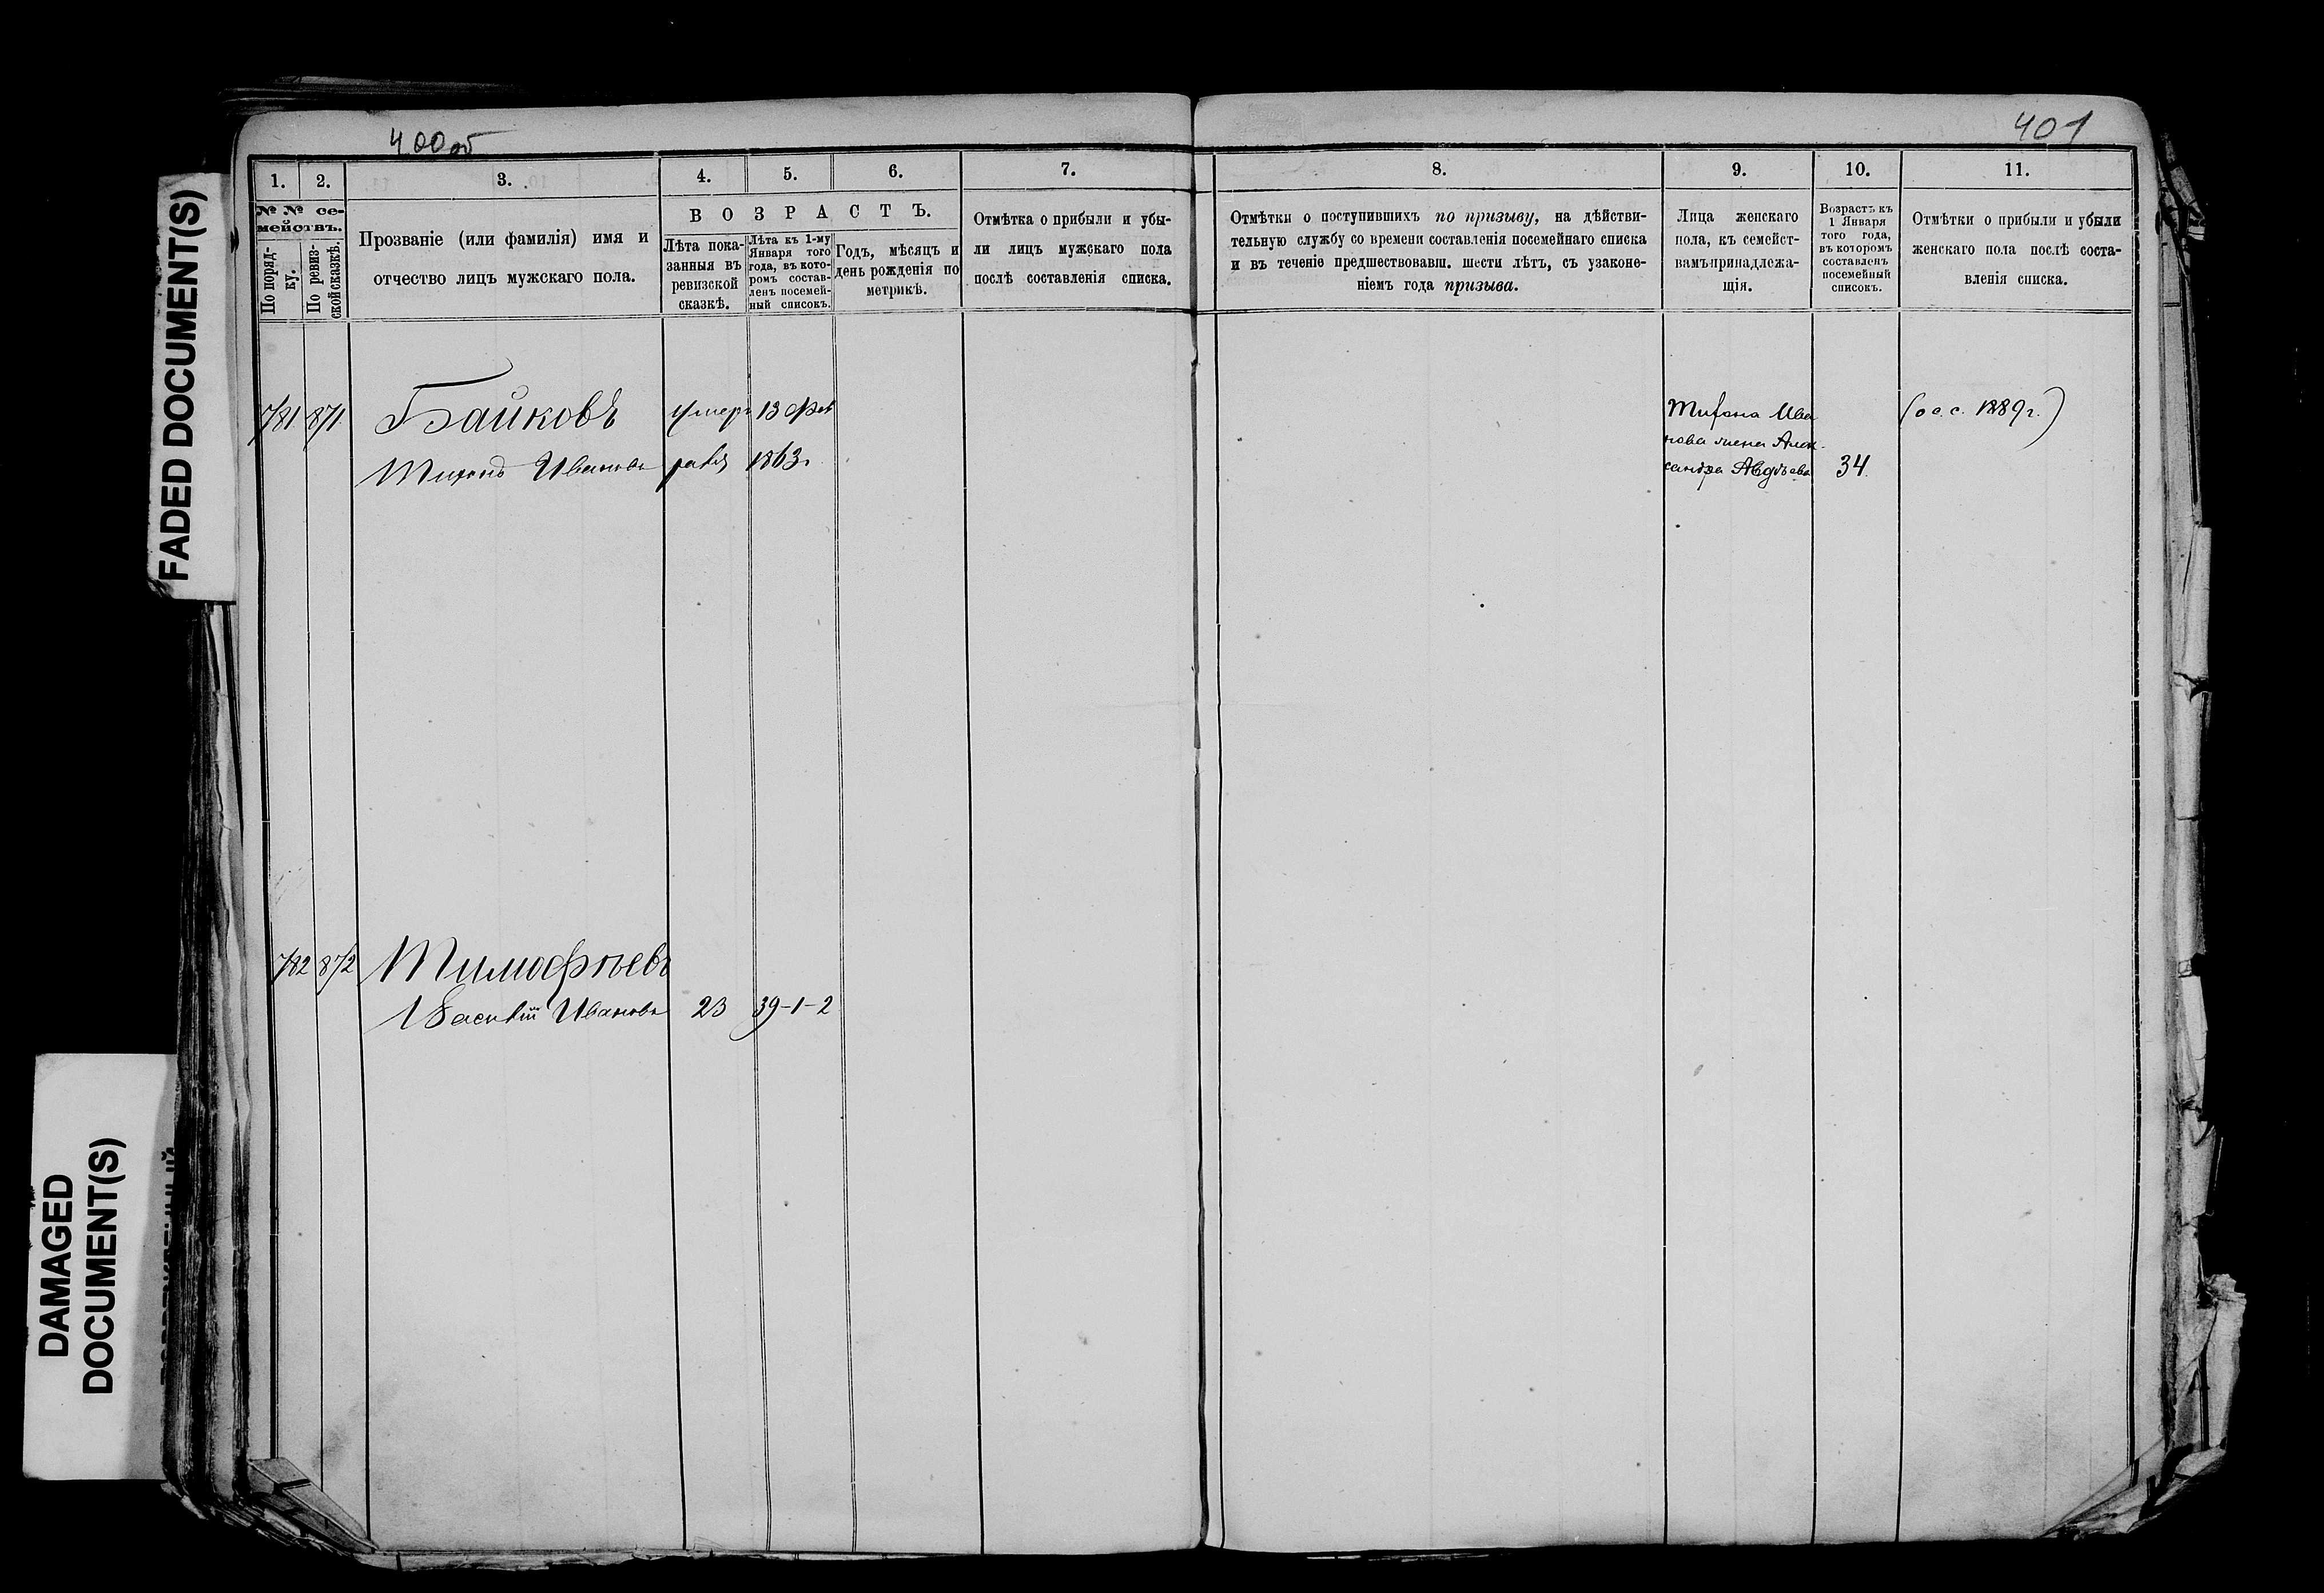 400об
401
FADED DOCUMENT(S)
DAMAGED
DOCUMENT(S)
1.
2.
3.
4.
5.
6.
7.
8.
9.
10.
11.
№ № се-
мействъ.
По поряд-
ку.
По ревиз-
ской сказкѣ.
Прозваніе (или фамилія) имя и
отчество лицъ мужскаго пола.
ВОЗРАСТЪ.
Лѣта пока-
занныя въ
ревизской
сказкѣ.
Лѣта къ 1-му
Января того
года, въ кото-
ромъ состав-
ленъ посемей-
ный списокъ.
Годъ, мѣсяцъ и
день рожденія по
метрикѣ.
Отмѣтка о прибыли и убы-
ли лицъ мужскаго пола
послѣ составленія списка.
Отмѣтки о поступившихъ по призыву, на дѣйстви-
тельную службу со времени составленія посемейнаго списка
и въ теченіе предшествовавш. шести лѣтъ, съ узаконе-
ніемъ года призыва.
Лица женскаго
пола, къ семейст-
вамъ принадлежа-
щія.
Возрастъ къ
1 Января
того года,
въ которомъ
составленъ
посемейный
списокъ.
Отмѣтки о прибыли и убыли
женскаго пола послѣ соста-
вленія списка.
781 871 Байковъ умеръ 13 фев
Тихонъ Ивановъ 1863г
Тихона Ива
нова жена Алек-
сандра Авдѣева 34
(о с. с. 1889г.)
782 872 Тимофѣевъ
Василій Ивановъ 23 39-1-2